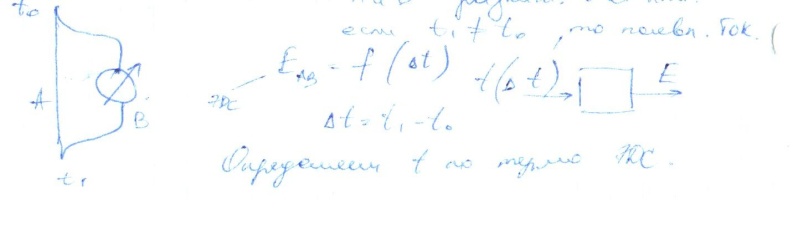 t₀
если t₁ ≠ t₀, то появл. ток. (
E_AB = f(Δt)
t(Δt) E
ЭДС
A B
Δt = t₁ - t₀
t₁
Определяем t по термо ЭДС.